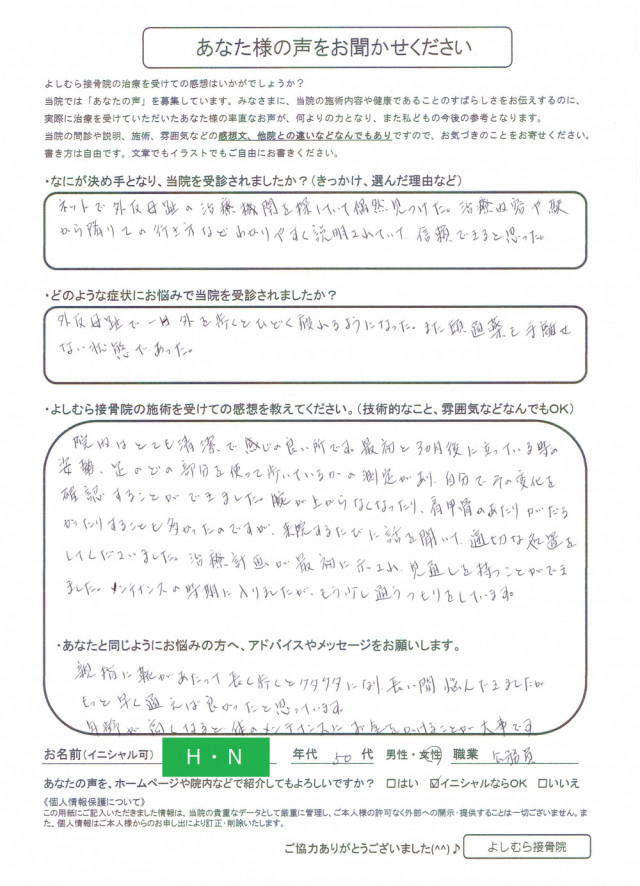 あなた様の声をお聞かせください
よしむら接骨院の治療を受けての感想はいかがでしょうか？
当院では「あなたの声」を募集しています。みなさまに、当院の施術内容や健康であることのすばらしさをお伝えするのに、
実際に治療を受けていただいたあなた様の率直なお声が、何よりの力となり、また私どもの今後の参考となります。
当院の問診や説明、施術、雰囲気などの感想文、他院との違いなどなんでもありですので、お気づきのことをお寄せください。
書き方は自由です。文章でもイラストでもご自由にお書きください。
・なにが決め手となり、当院を受診されましたか？（きっかけ、選んだ理由など）
ネットで外反母趾の治療機関を探していて偶然見つけた。治療内容や駅
から降りての行き方などわかりやすく説明されていて、信頼できると思った。
・どのような症状にお悩みで当院を受診されましたか？
外反母趾で一日外を歩くとひどく疲れるようになった。また頭痛薬も手離せ
ない状態であった。
・よしむら接骨院の施術を受けての感想を教えてください。（技術的なこと、雰囲気などなんでもOK）
院内はとても清潔で感じの良い所です。最初と3ヵ月後に立っている時の
姿勢、足のどの部分を使って歩いているかの測定があり、自分でその変化を
確認することができました。腕が上がらなくなったり、肩甲骨のあたりがだる
かったりすることも多かったのですが、来院するたびに話を聞いて、適切な処置を
してくださいました。治療計画が最初に示され、見通しを持つことができ
ました。メンテナンスの時期に入りましたが、もう少し通うつもりをしています。
・あなたと同じようにお悩みの方へ、アドバイスやメッセージをお願いします。
親指に靴があたって長く歩くとクタクタになり、長い間悩んできましたが
もっと早く通えば良かったと思っています。
年齢が高くなると体のメンテナンスにお金をかけることが大事です
お名前（イニシャル可） H・N 年代 50代 男性・女性 職業
あなたの声を、ホームページや院内などで紹介してもよろしいですか？ □はい ☑イニシャルならOK □いいえ
《個人情報保護について》
この用紙にご記入いただきました情報は、当院の貴重なデータとして厳重に管理し、ご本人様の許可なく外部への開示・提供することは一切ございません。ま
た、個人情報はご本人様からのお申し出により訂正・削除いたします。
ご協力ありがとうございました(^^)♪ よしむら接骨院